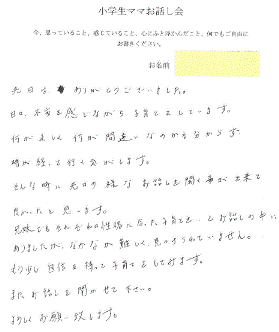 小学生ママお話し会
今、思っていること、感じていること、心にふと浮かんだこと、何でもご自由に
お書きください。
お名前
先日は、ありがとうございました。
日々、不安を感じながら子育てをしています。
何が正しく何が間違いなのかも分からず、
時が経って行く気がします。
そんな時に先日の様なお話しを聞く事が出来て
良かったと思います。
兄妹でもそれぞれの性格に合った子育てを…とお話しの中に
ありましたが、なかなか難しく、見つけられていません。
もう少し自信を持って子育てをしてみます。
またお話しを聞かせて下さい。
よろしくお願い致します。